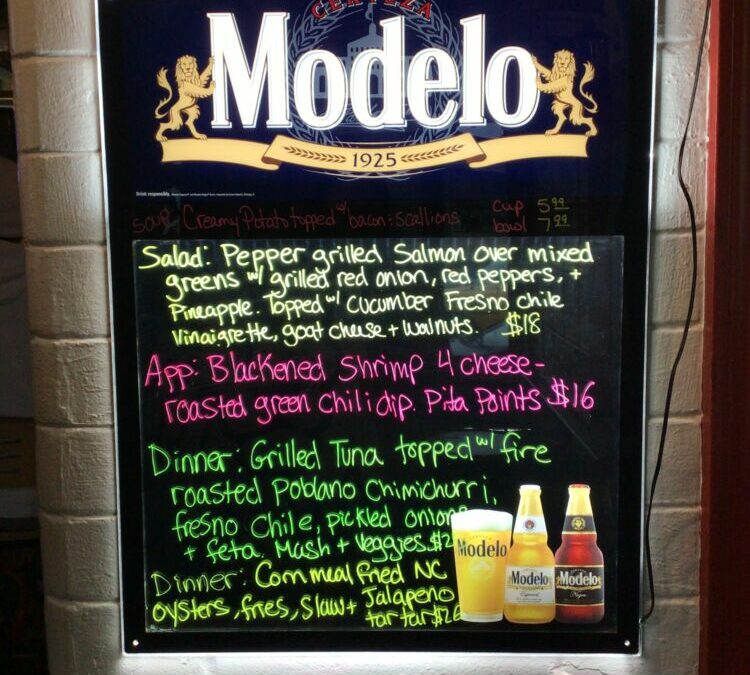 CERVEZA
Modelo
1925
Drink responsibly.
Soup: Creamy Potato topped w/ bacon + scallions cup 5.99
bowl 7.99
Salad: Pepper grilled Salmon over mixed
greens w/ grilled red onion, red peppers, +
Pineapple. Topped w/ cucumber Fresno chile
Vinaigrette, goat cheese + walnuts. $18
App: Blackened Shrimp 4 cheese-
roasted green chili dip. Pita Points $16
Dinner: Grilled Tuna topped w/ fire
roasted Poblano Chimichurri,
fresno chile, pickled onions
+ feta. Mash + Veggies $2
Dinner: Corn meal fried NC
oysters, fries, Slaw + Jalapeno
tartar $26
Modelo
Modelo
Especial
Modelo
Negra